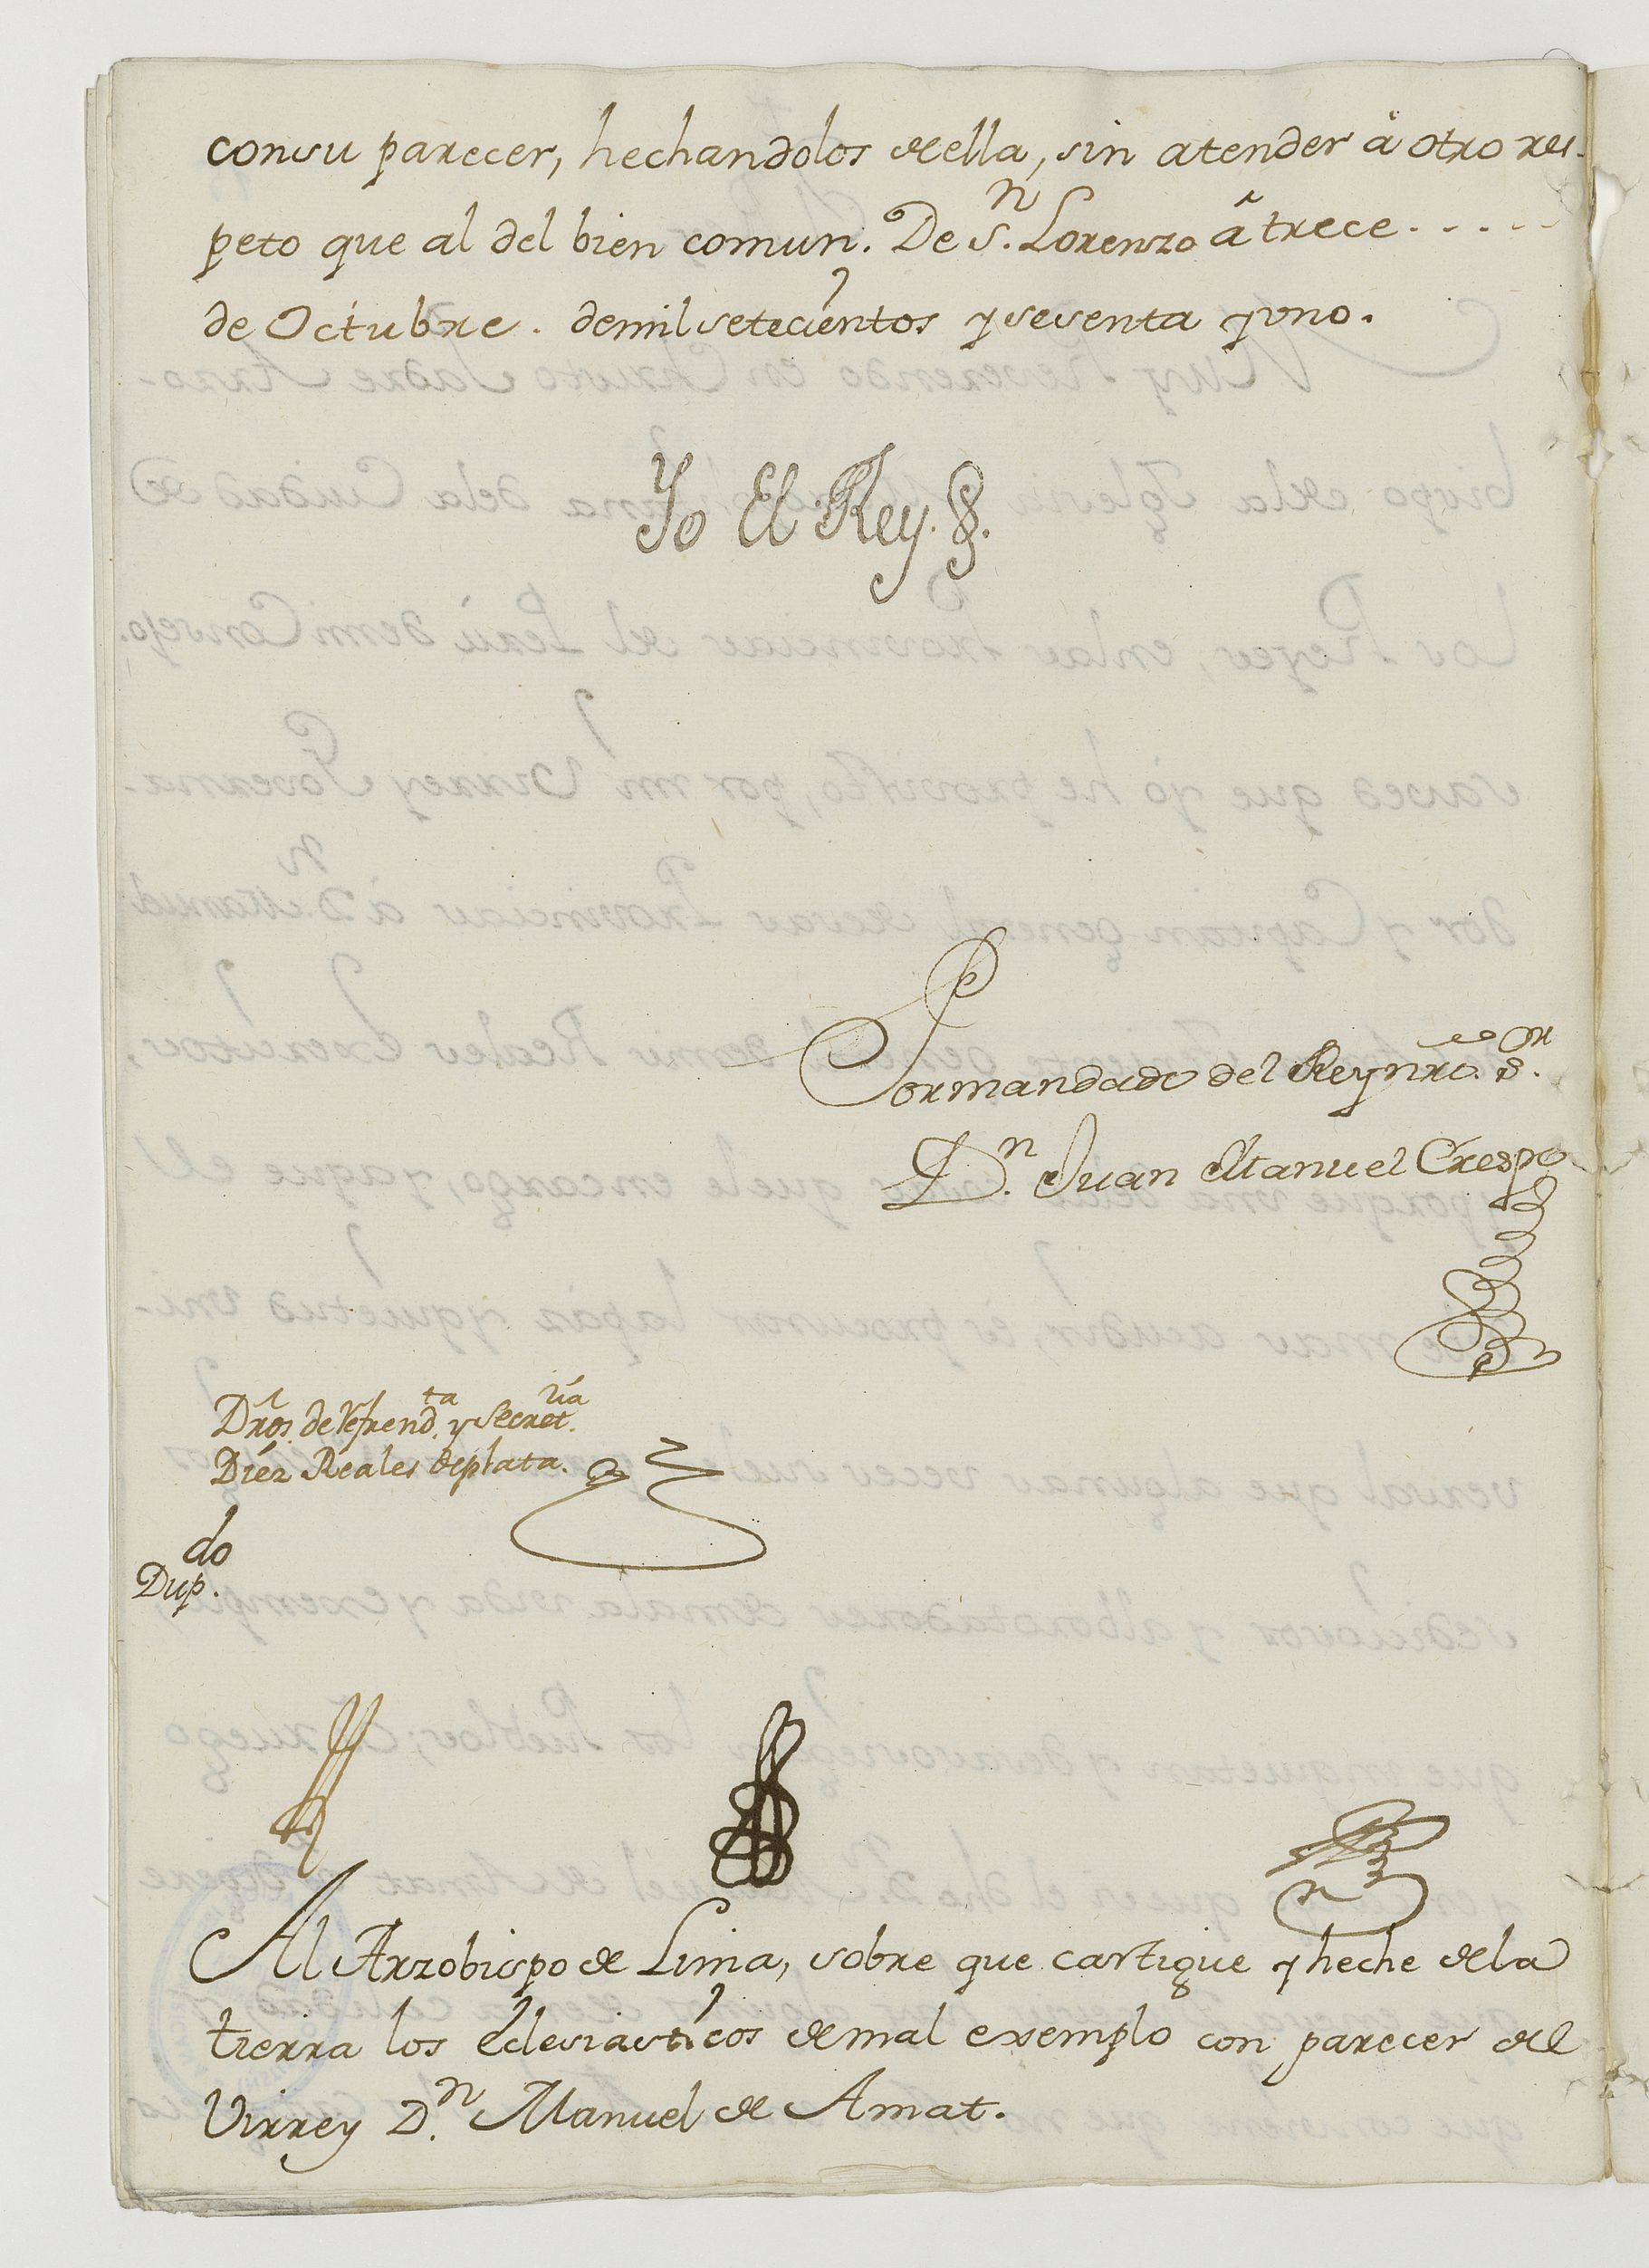 consu parecer, hechandolos de ella, sin atender â otro res-
peto que al del bien comun. De Sn. Lorenzo â trece.....
de Octubre. demil setecientos y sesenta y uno.
Yo El Rey.
Pormandado del Rey nro. Sor.
Dn. Juan Manuel Crespo
Dros. de Refrendta. y Secretria.
Diez Reales de plata.
Dupdo.
Al Arzobispo de Lima, sobre que castigue y heche dela
tierra los eclesiasticos de mal exemplo con parecer del
Virrey Dn. Manuel de Amat.